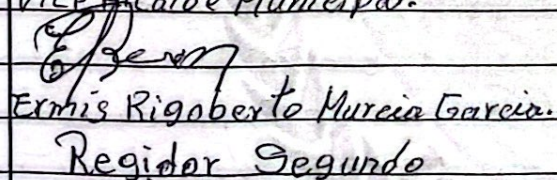 Vice Alcalde Municipal.
Ermis Rigoberto Murcia Garcia.
Regidor Segundo